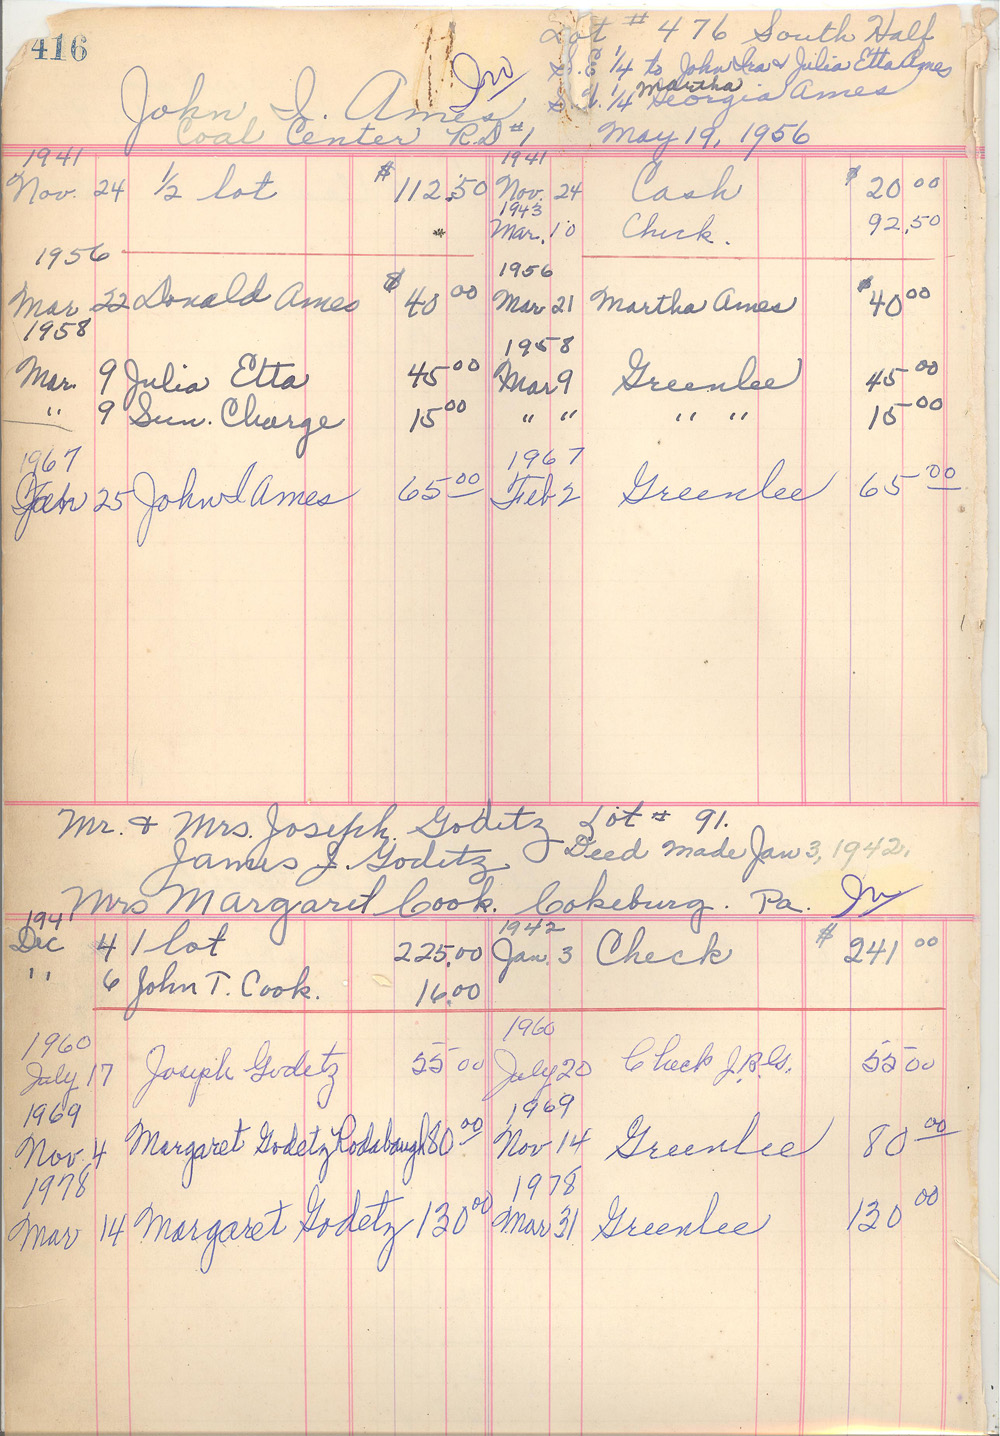 416
Lot # 476 South Half
S.E 1/4 to John Ira & Julia Etta Ames
Martha
S.W. 1/4 Georgia Ames
John I. Ames
Coal Center R.D #1 May 19, 1956
1941 1941
Nov. 24 1/2 lot $112.50 Nov. 24 Cash $20 00
1943
Mar. 10 Check. 92.50
1956 1956
Mar 22 Donald Ames $40 00 Mar 21 Martha Ames $40 00
1958 1958
Mar. 9 Julia Etta 45 00 Mar 9 Greenlee 45 00
" 9 Sun. Charge 15 00 " " " " 15 00
1967 1967
25 John I Ames 65 00 Feb 2 Greenlee 65 00
Mr. & Mrs. Joseph Godetz Lot # 91.
James J. Godetz Deed Made Jan 3, 1942.
Mrs Margaret Cook. Cokeburg. Pa.
194 1942
Dec 4 1 lot 225.00 Jan. 3 Check $241 00
" 6 John T. Cook. 16.00
1960 1960
July 17 Joseph Godetz 55 00 July 20 Check J.R.G. 55 00
1969 1969
Nov. 4 Margaret Godetz Rodabaugh 80 00 Nov 14 Greenlee 80 00
1978 1978
Mar 14 Margaret Godetz 130 00 Mar 31 Greenlee 130 00